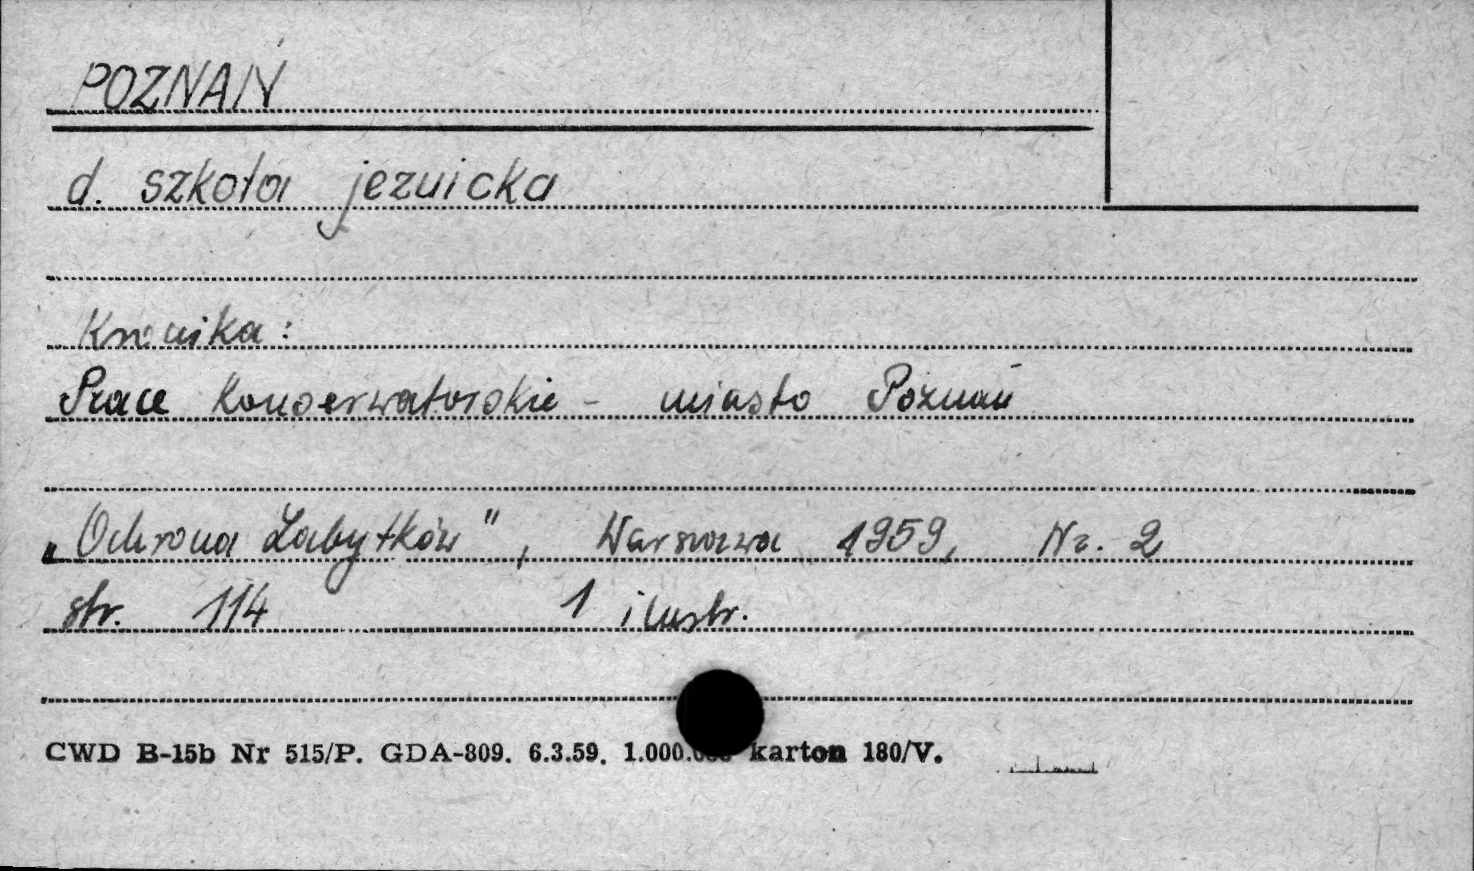 POZNAŃ
d. szkoła jezuicka
Kronika:
Prace konserwatorskie - miasto Poznań
„Ochrona Zabytków", Warszawa 1959, Nr. 2
str. 114 1 ilustr.
CWD B-15b Nr 515/P. GDA-809. 6.3.59. 1.000. karton 180/V.